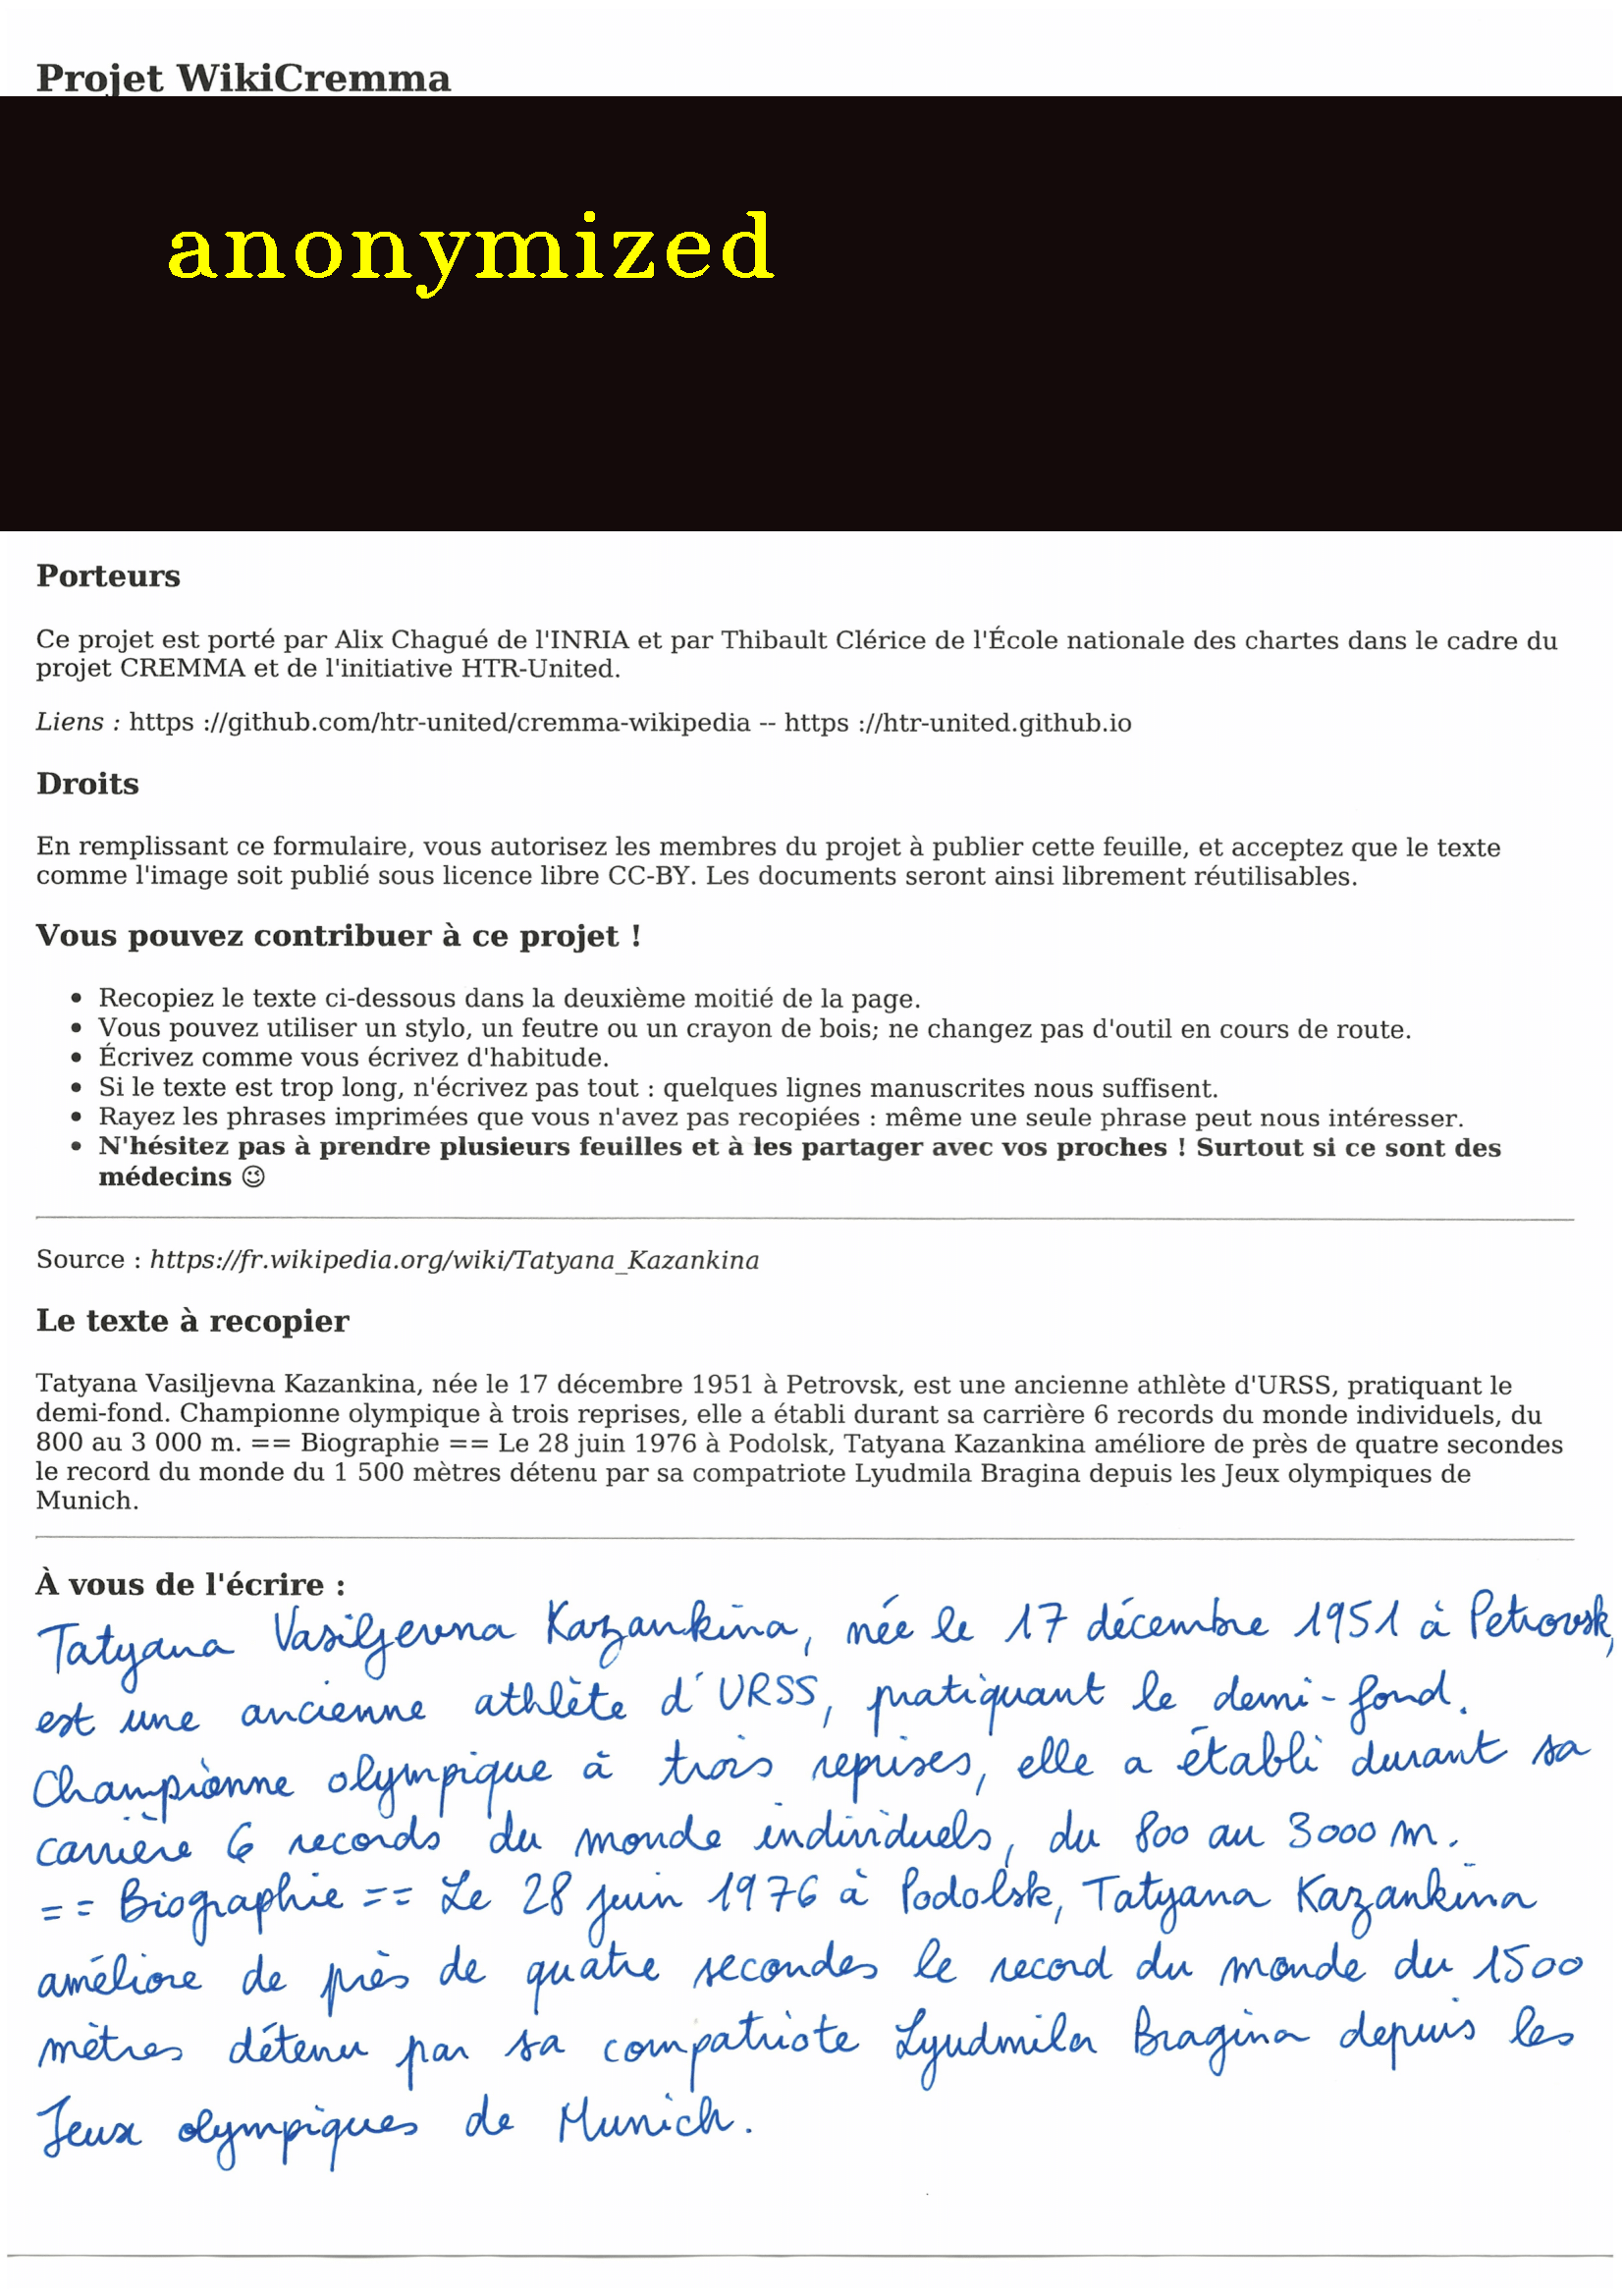 Projet WikiCremma
anonymized
Porteurs
Ce projet est porté par Alix Chagué de l'INRIA et par Thibault Clérice de l'École nationale des chartes dans le cadre du
projet CREMMA et de l'initiative HTR-United.
Liens : https ://github.com/htr-united/cremma-wikipedia -- https ://htr-united.github.io
Droits
En remplissant ce formulaire, vous autorisez les membres du projet à publier cette feuille, et acceptez que le texte
comme l'image soit publié sous licence libre CC-BY. Les documents seront ainsi librement réutilisables.
Vous pouvez contribuer à ce projet !
• Recopiez le texte ci-dessous dans la deuxième moitié de la page.
• Vous pouvez utiliser un stylo, un feutre ou un crayon de bois; ne changez pas d'outil en cours de route.
• Écrivez comme vous écrivez d'habitude.
• Si le texte est trop long, n'écrivez pas tout : quelques lignes manuscrites nous suffisent.
• Rayez les phrases imprimées que vous n'avez pas recopiées : même une seule phrase peut nous intéresser.
• N'hésitez pas à prendre plusieurs feuilles et à les partager avec vos proches ! Surtout si ce sont des
médecins 😉
Source : https://fr.wikipedia.org/wiki/Tatyana_Kazankina
Le texte à recopier
Tatyana Vasiljevna Kazankina, née le 17 décembre 1951 à Petrovsk, est une ancienne athlète d'URSS, pratiquant le
demi-fond. Championne olympique à trois reprises, elle a établi durant sa carrière 6 records du monde individuels, du
800 au 3 000 m. == Biographie == Le 28 juin 1976 à Podolsk, Tatyana Kazankina améliore de près de quatre secondes
le record du monde du 1 500 mètres détenu par sa compatriote Lyudmila Bragina depuis les Jeux olympiques de
Munich.
À vous de l'écrire :
Tatyana Vasiljevna Kazankina, née le 17 décembre 1951 à Petrovsk,
est une ancienne athlète d'URSS, pratiquant le demi-fond.
Championne olympique à trois reprises, elle a établi durant sa
carrière 6 records du monde individuels, du 800 au 3000 m.
== Biographie == Le 28 juin 1976 à Podolsk, Tatyana Kazankina
améliore de près de quatre secondes le record du monde du 1500
mètres détenu par sa compatriote Lyudmila Bragina depuis les
Jeux olympiques de Munich.